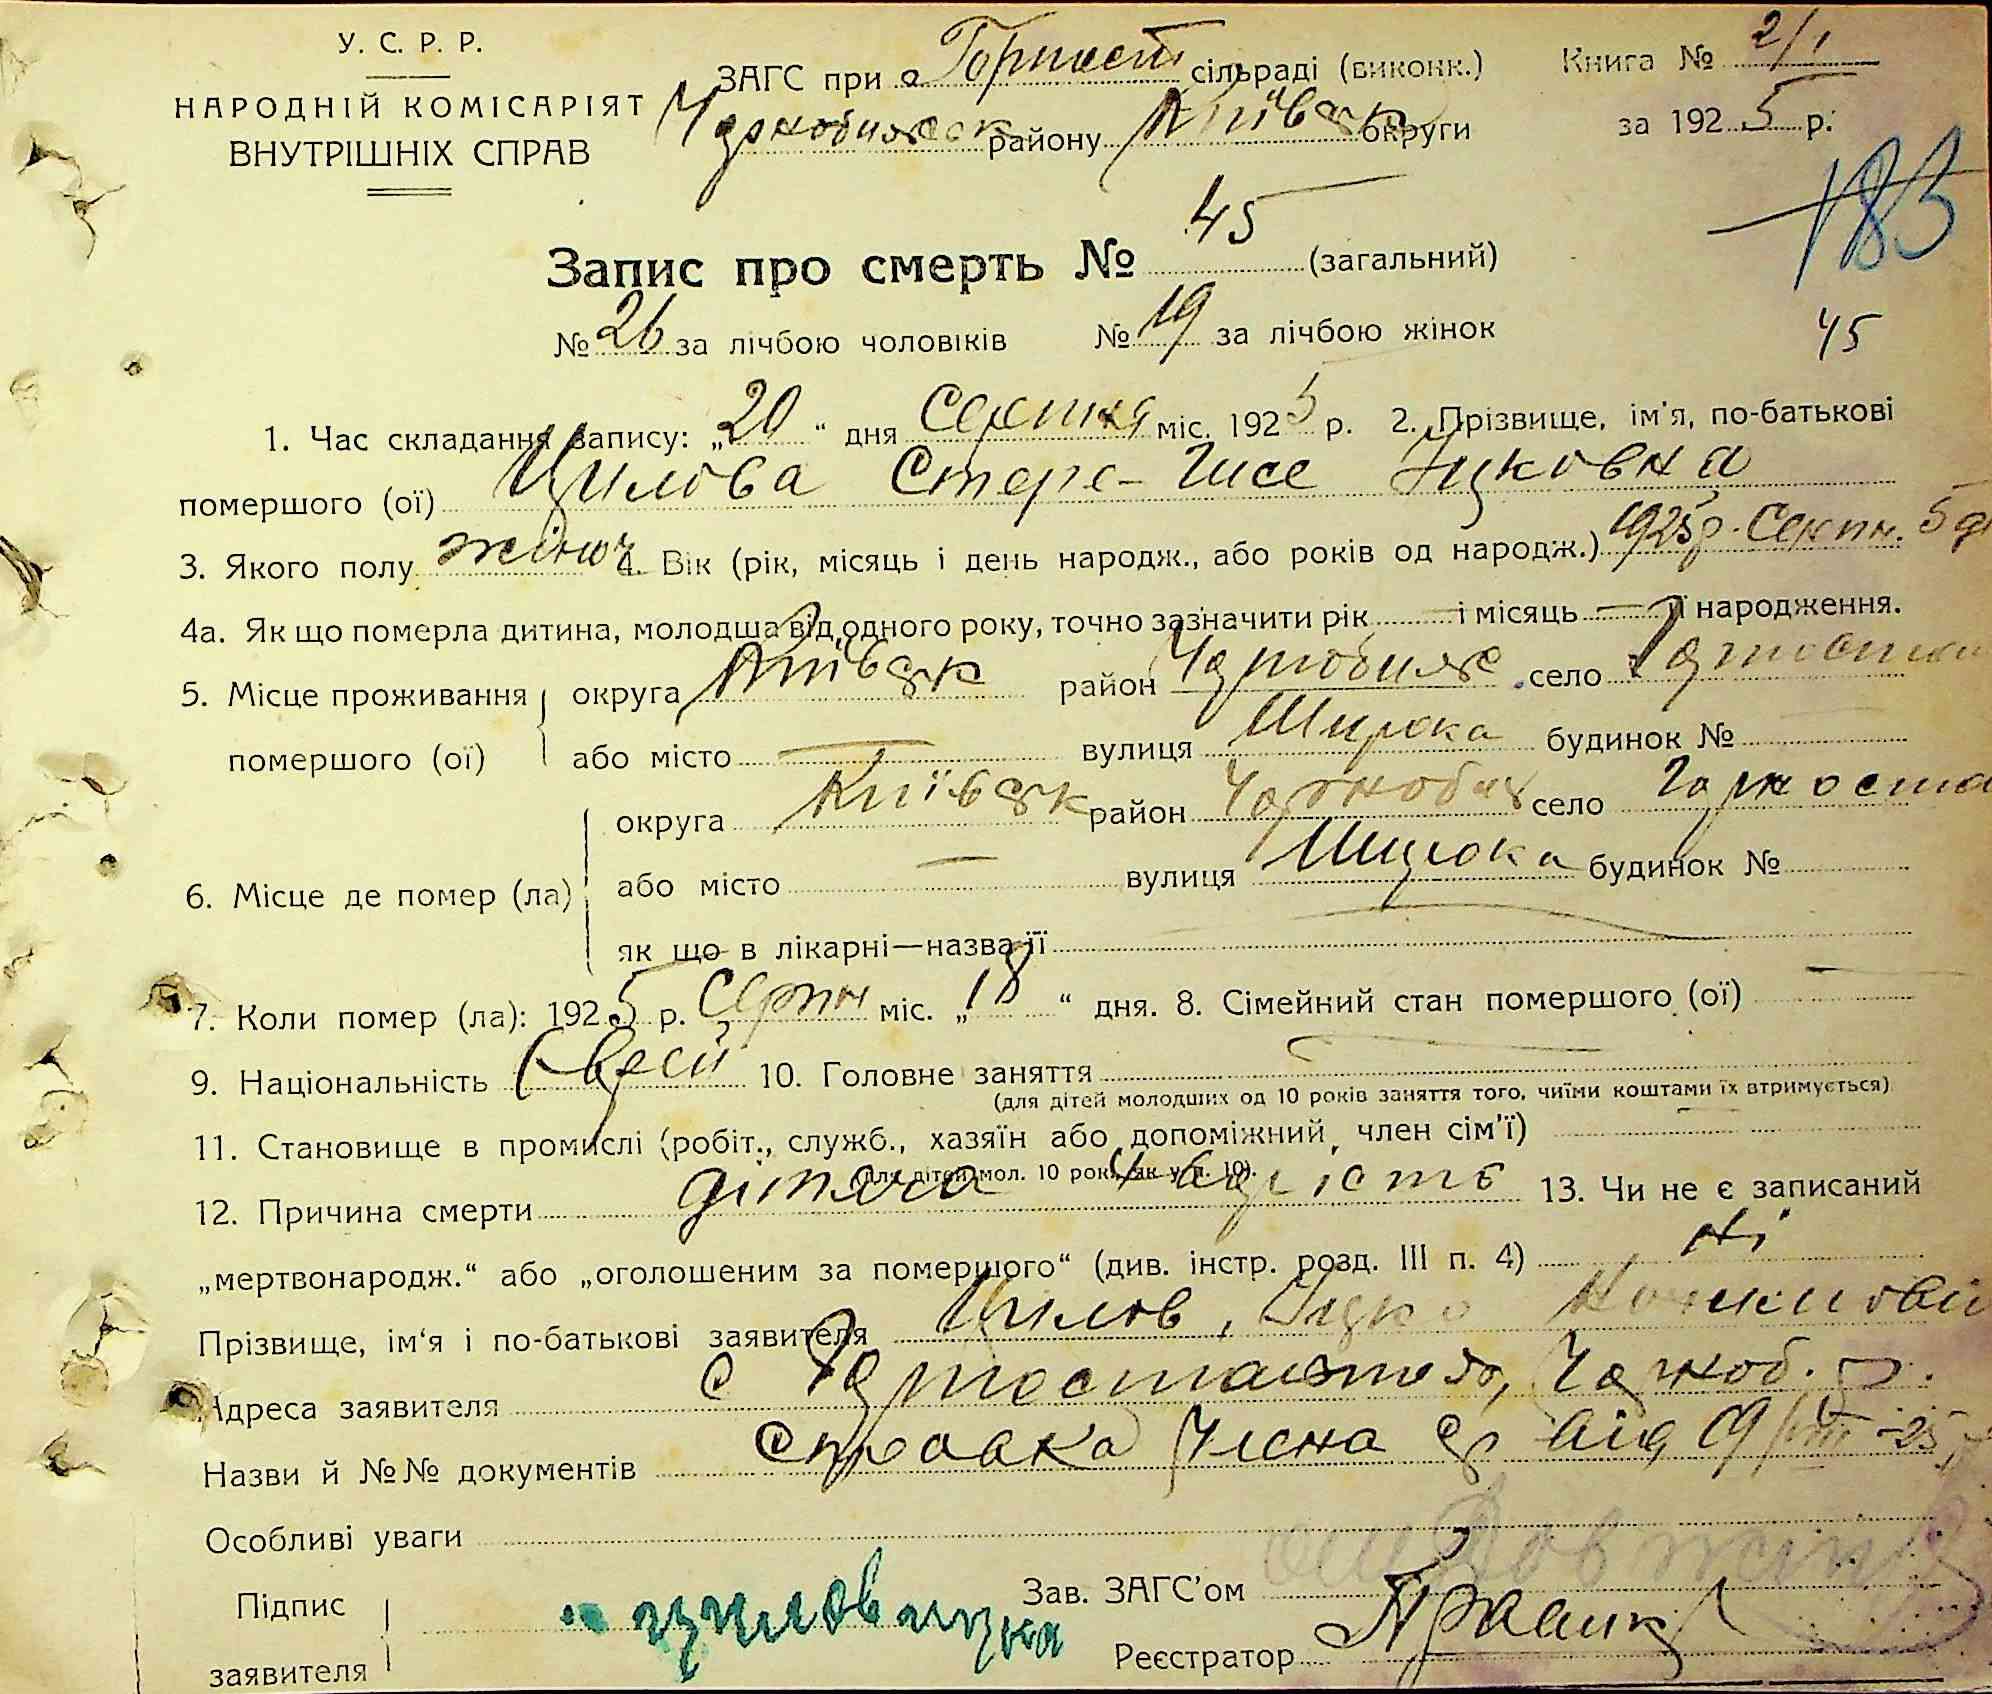 У. С. Р. Р.
НАРОДНІЙ КОМІСАРІЯТ
ВНУТРІШНІХ СПРАВ
ЗАГС при Горност сільраді (виконк.)
району Київськ округи
Книга № 2/1
за 1925 р.
183
Запис про смерть № 45 (загальний)
№ 26 за лічбою чоловіків № 19 за лічбою жінок
45
1. Час складання запису: „20“ дня Серпня міс. 1925 р. 2. Прізвище, ім'я, по-батькові
помершого (ої) Цилова Стере- Ицковна
3. Якого полу жіноч 4. Вік (рік, місяць і день народж., або років од народж.) 1925р. 5
4а. Як що померла дитина, молодша від одного року, точно зазначити рік — і місяць — її народження.
5. Місце проживання помершого (ої) округа Київськ район село
або місто — вулиця Широка будинок №
6. Місце де помер (ла) округа Київськ район село Горноста
або місто — вулиця Широка будинок №
як що в лікарні—назва її
7. Коли помер (ла): 1925 р. Серпн міс. „18“ дня. 8. Сімейний стан помершого (ої) —
9. Національність Євреї 10. Головне заняття
(для дітей молодших од 10 років заняття того, чиїми коштами їх втримується)
11. Становище в промислі (робіт., служб., хазяїн або допоміжний член сім'ї)
(для дітей мол. 10 рок. як у п. 10).
12. Причина смерти дітяча 13. Чи не є записаний
„мертвонародж.“ або „оголошеним за помершого“ (див. інстр. розд. III п. 4) Ні
Прізвище, ім'я і по-батькові заявителя Цилов, Ицко
Адреса заявителя с Чорноб. р.
Назви й №№ документів Справка від 19/VIII -25
Особливі уваги
Підпис заявителя цилов ицка
Зав. ЗАГС'ом
Реєстратор